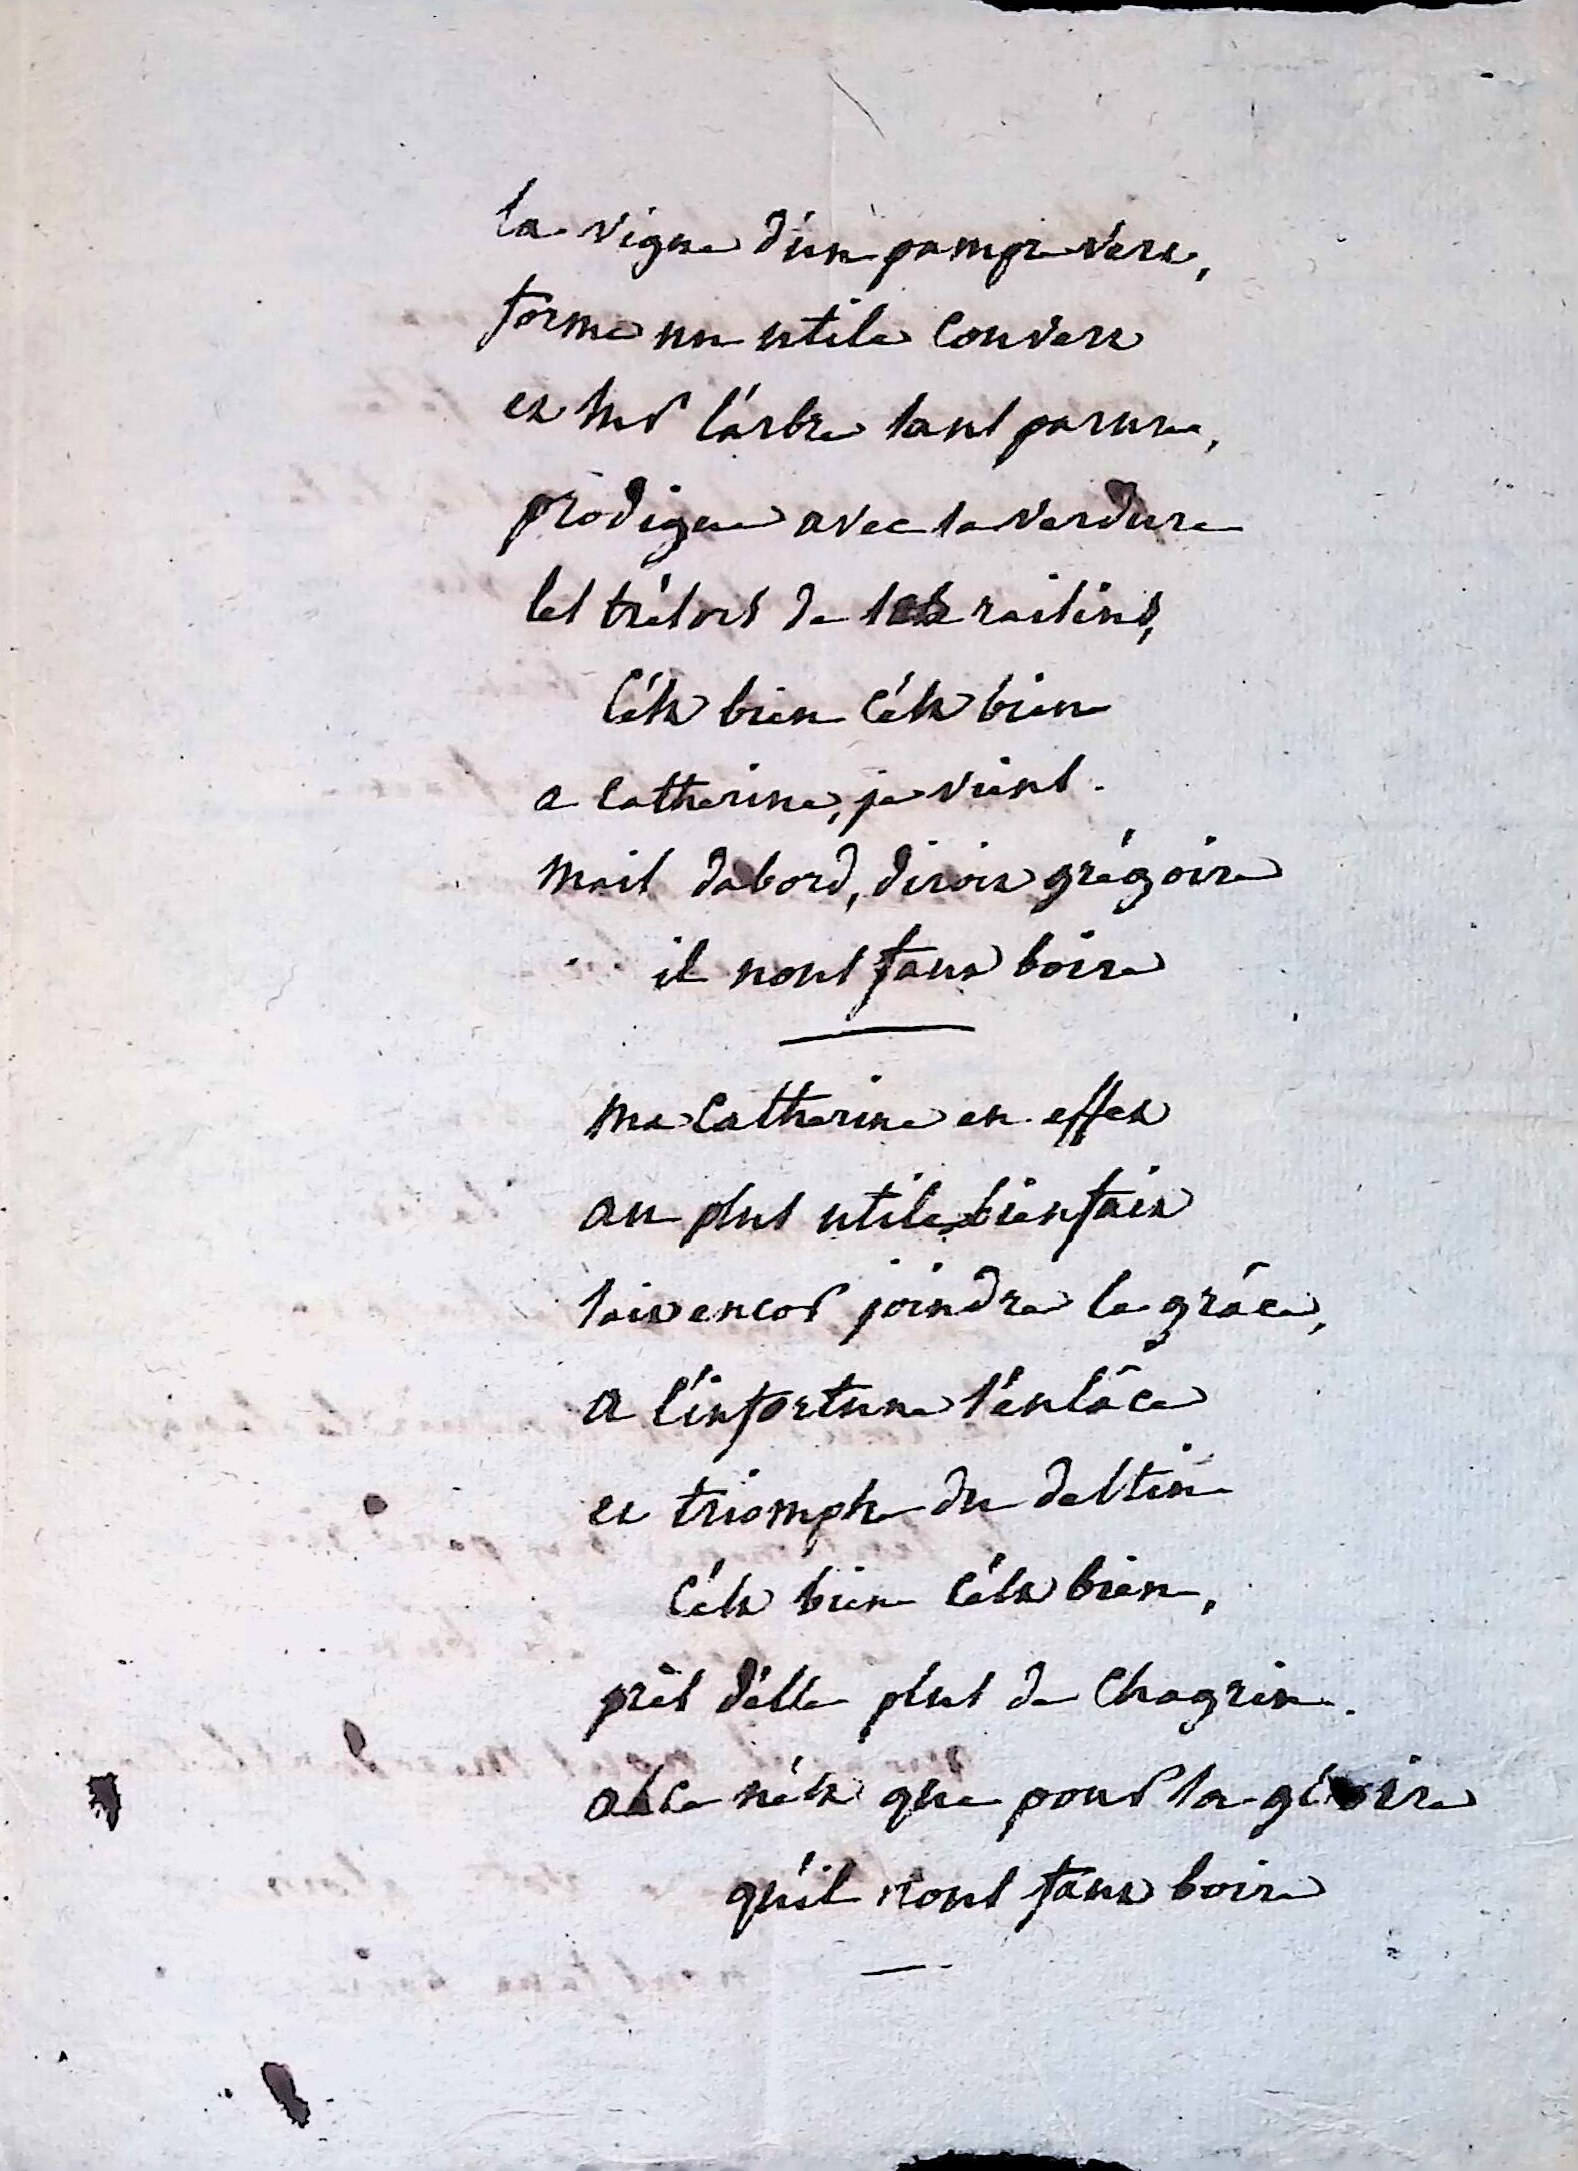 la vigne d'un pampre vert,
forme un utile couvert
et sur l'arbre sans parure,
prodigue avec sa verdure
les trésors de ses raisins,
c'ést bien c'ést bien
a catherine, je viens.
mais dabord, diroit grégoire
il nous faut boire
ma catherine en effet
au plus utile bienfait
sait encor joindre la grâce,
a l'infortune s'enlâce
et triomphe du destin
c'ést bien c'ést bien,
près d'élle plus de chagrin.
ce n'ést que pour sa gloire
qu'il nous faut boire